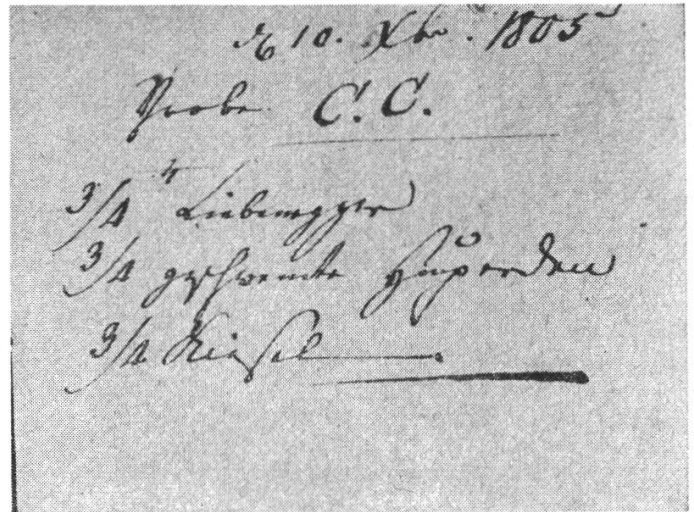 d 10. Xbr. 1805
Probe C. C.
3/4 ℔ Liebenegger
3/4 geschwemte Huperden
3/4 Kiesel